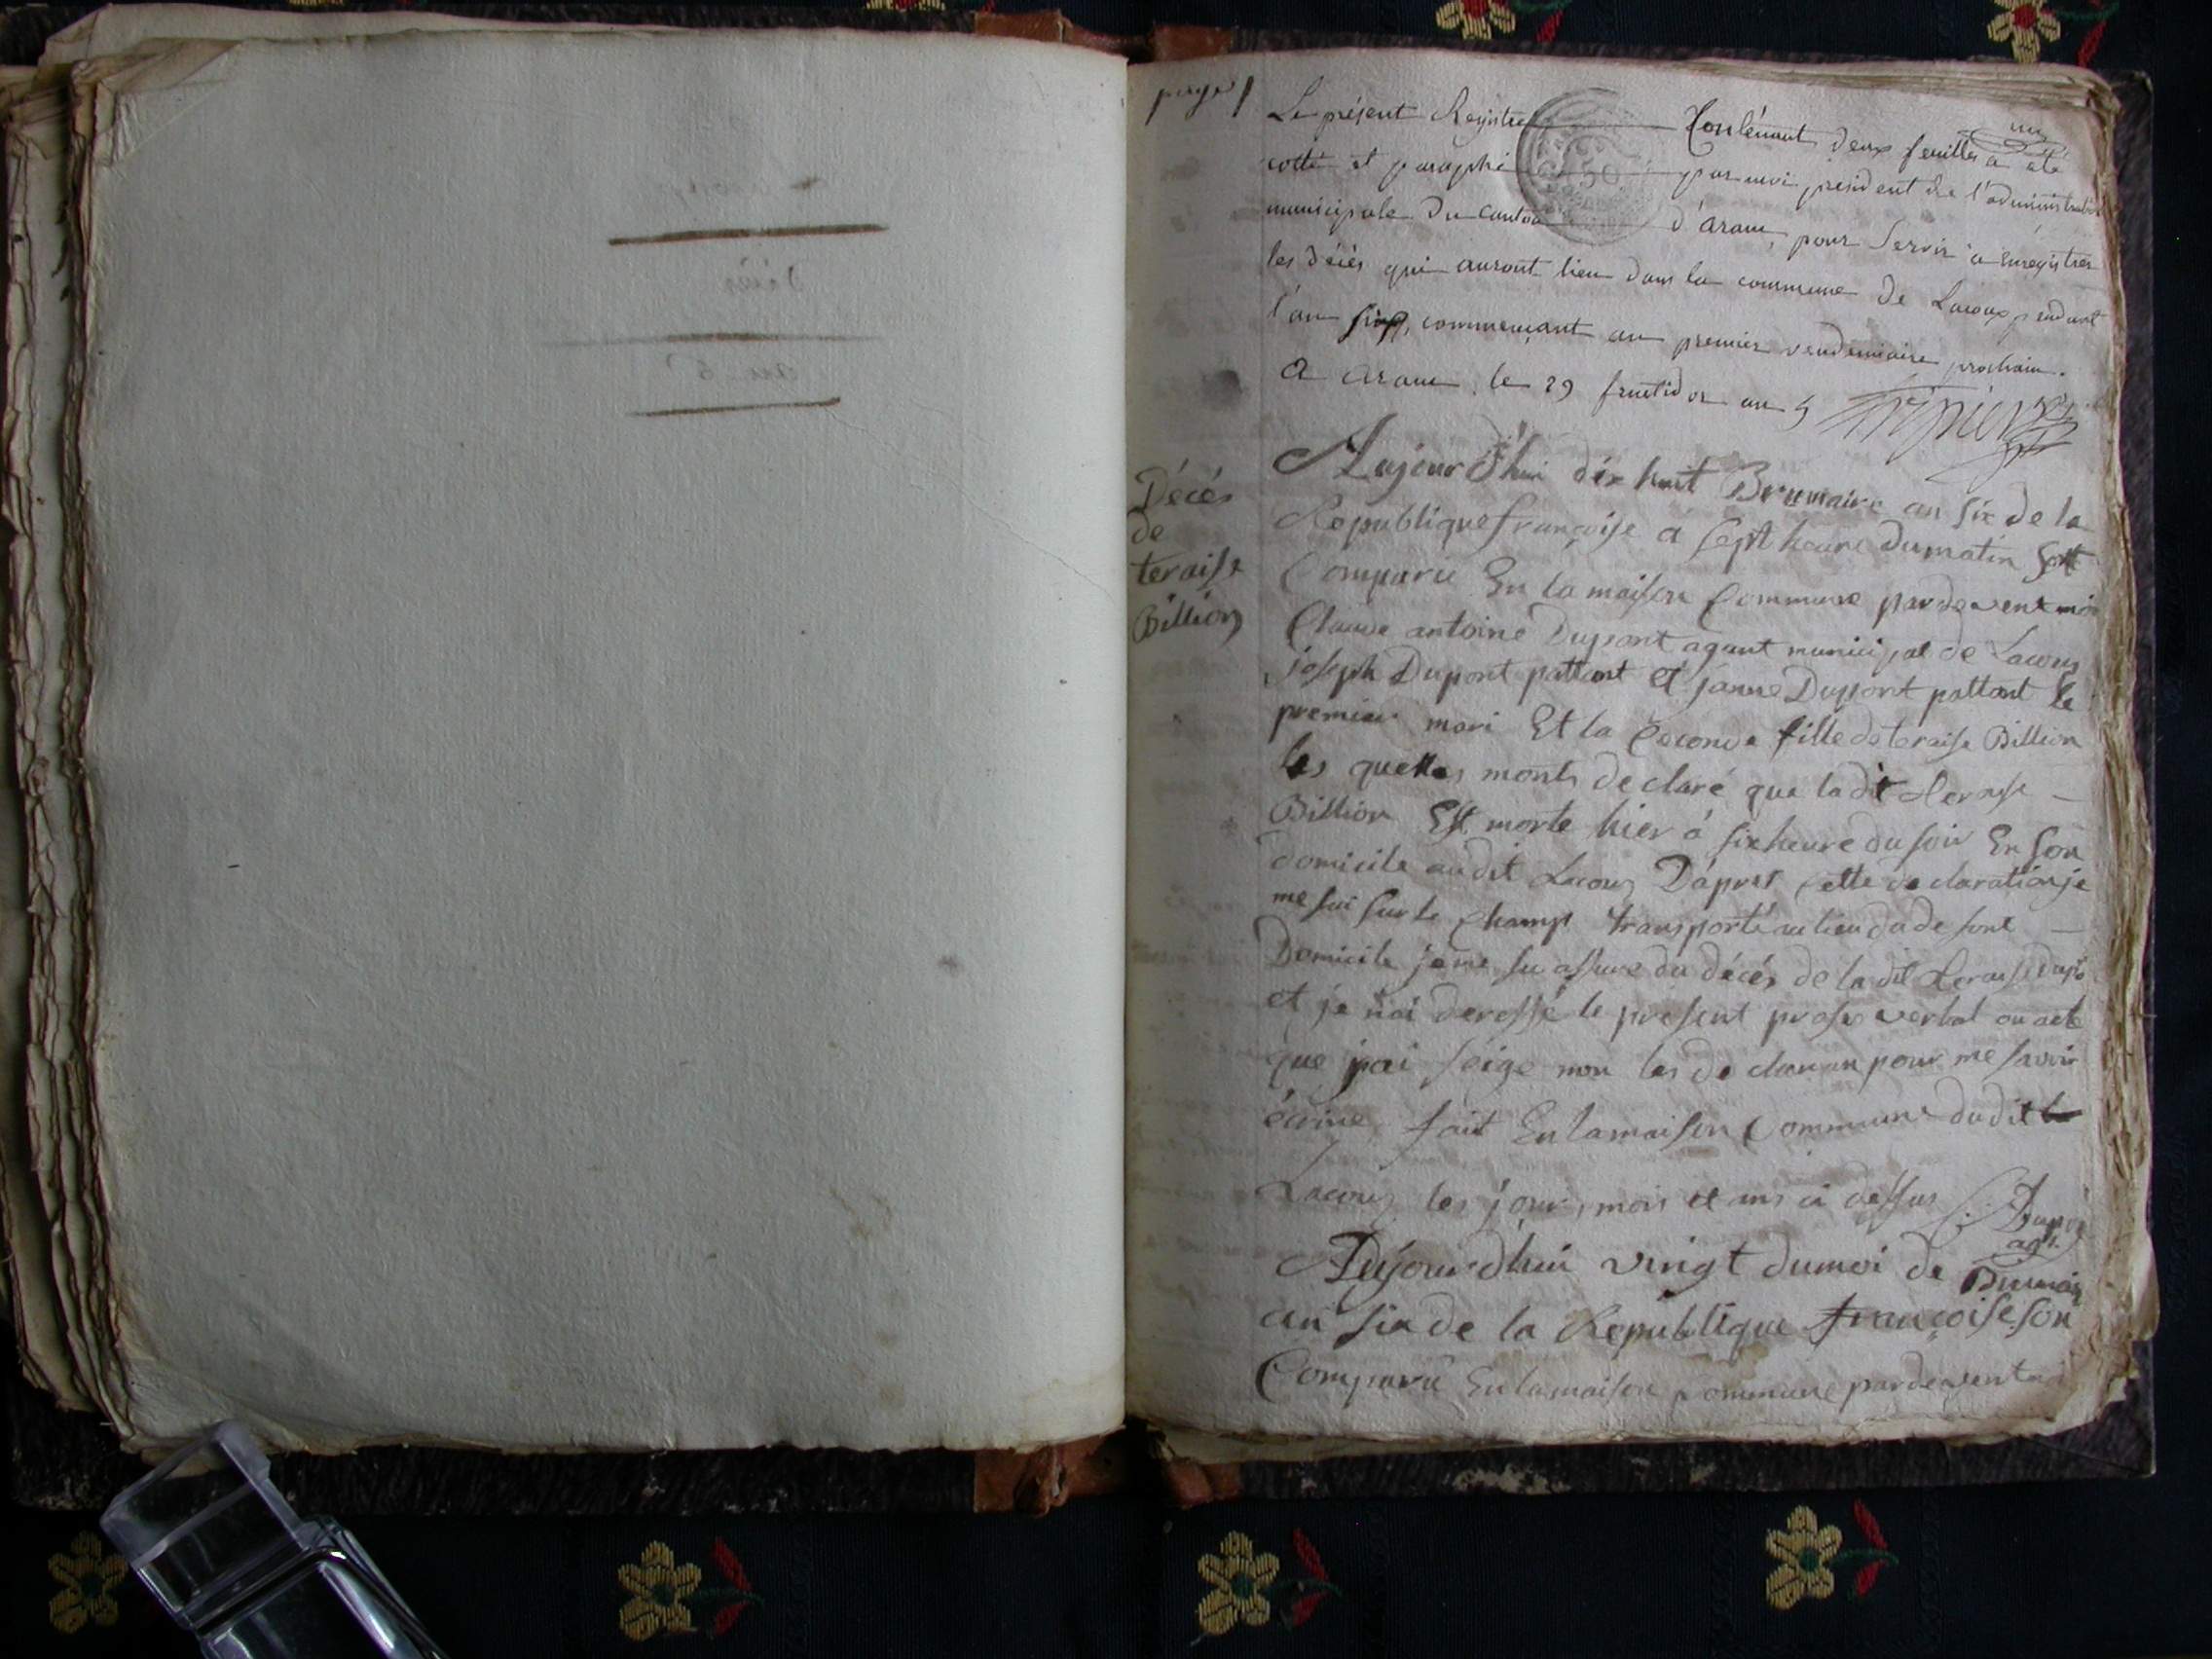 page 1
un
Le présent Registre Contenant deux feuilles a été
cotté et paraphé par moi, président de l'administration
municipale du canton d'aranc, pour servir à enregistrer
les décès qui auront lieu dans la commune de Lacoux pendant
l'an six, commençant au premier vendemiaire prochain.
A aranc, le 29 fructidor an 5
50
Décés
de
teraise
Billion
Aujourd'hui dix huit Brumaire an six de la
Republique françoise a sept heure du matin sont
Comparu En la maison Commune pardevent moi
Claude antoine Dupont agant municipal de Lacoux
joseph Dupont pattant et janne Dupont pattant le
premier mari Et la seconde fille de teraise Billion
les quelles monts declaré que la dit teraise
Billion Est morte hier à six heure du soir En son
domicile au dit Lacoux D'apres cette declaration je
me sui sur le champ transporté au lieu du de sont
Domicile je me sui assure du décés de la dit teraise
et je nai deressé le present proses verbal ou acte
que jai seigé non les de claran pour me savoir
écrire fait En la maison Commune du dit
Lacoux les jour, mois et ans ci dessus
agt.
Aujourd'hui vingt du moi de Brumair
an six de la Republique françoise son
Comparu En la maison commune pardevent